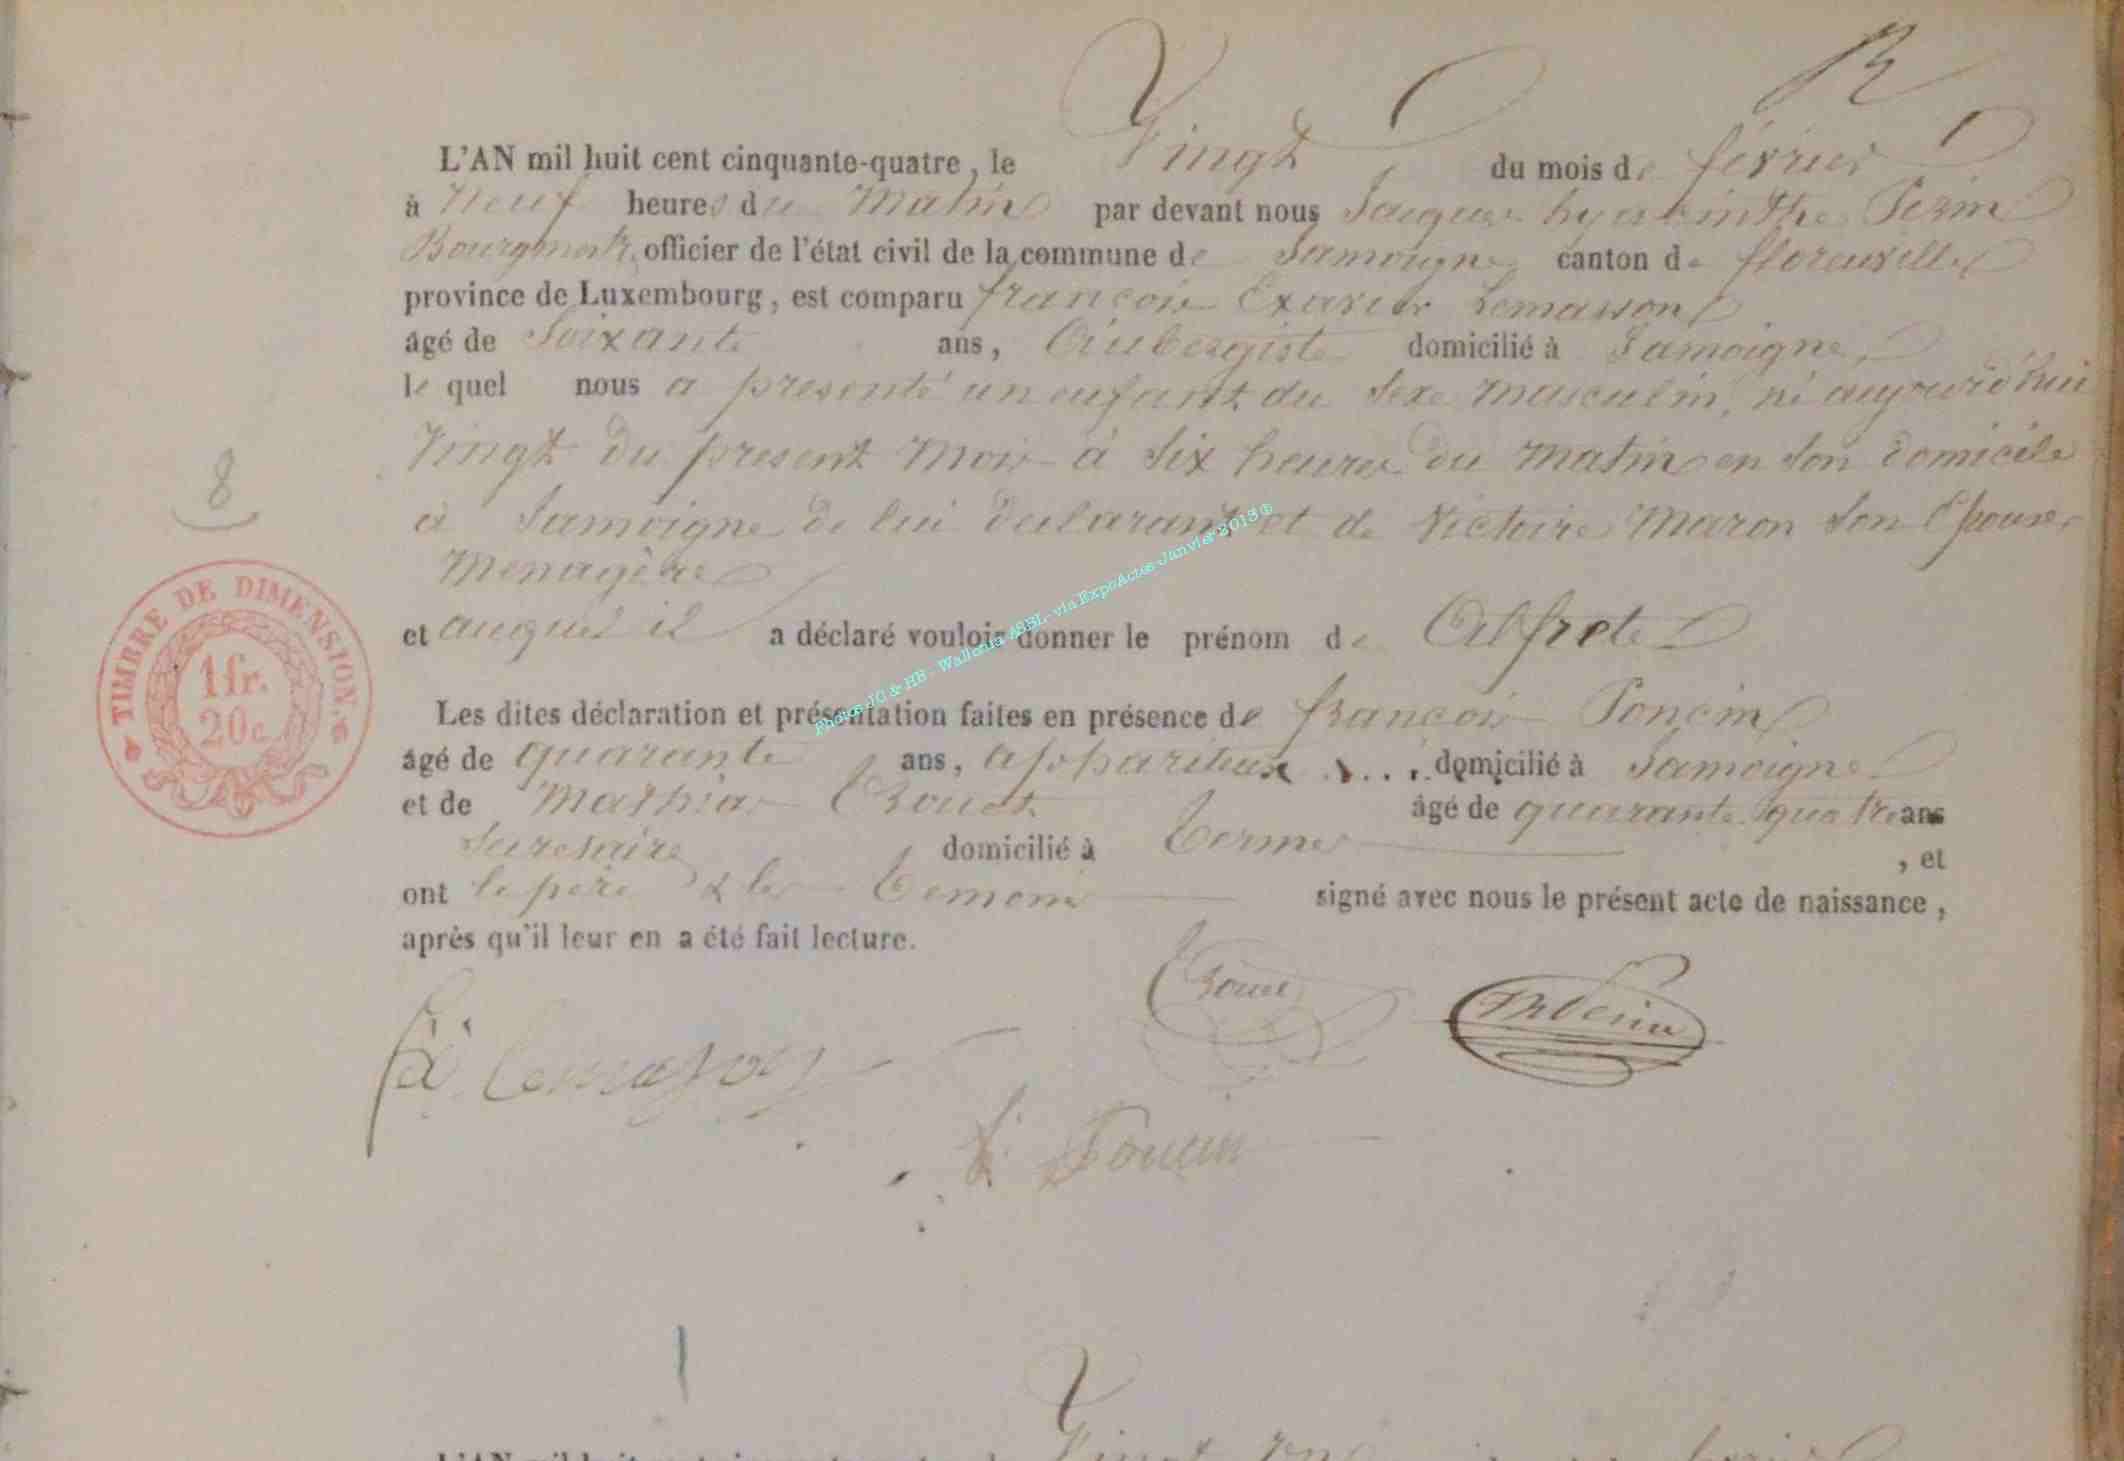 L'AN mil huit cent cinquante-quatre, le Vingt du mois de février
à Neuf heures du Matin par devant nous Jacques hyacinthe Perin
Bourgmestre officier de l'état civil de la commune de Jamoigne canton de florenville
province de Luxembourg, est comparu françois Exavier Lemasson
âgé de Soixante ans, Aubergiste domicilié à Jamoigne,
le quel nous a presenté un enfant du Sexe masculin, né aujourd'hui
Vingt du present mois à Six heures du matin en son domicile
à Jamoigne de lui declarant et de Victoire Maron son Epouse
Menagère
et auquel il a déclaré vouloir donner le prénom de Alfrete
Les dites déclaration et présentation faites en présence de françois Poncin
âgé de quarante ans, appariteur domicilié à Jamoigne
et de Mathias Trouet âgé de quarante quatre ans
Secretaire domicilié à Termes, et
ont le père & les Temoins signé avec nous le présent acte de naissance,
après qu'il leur en a été fait lecture.
8
TIMBRE DE DIMENSION.
1 fr.
20 c
Photos JC & HB - Wallonia ASBL - via ExpoActes Janvier 2013 ©
Lemasson
Poncin
Vingt